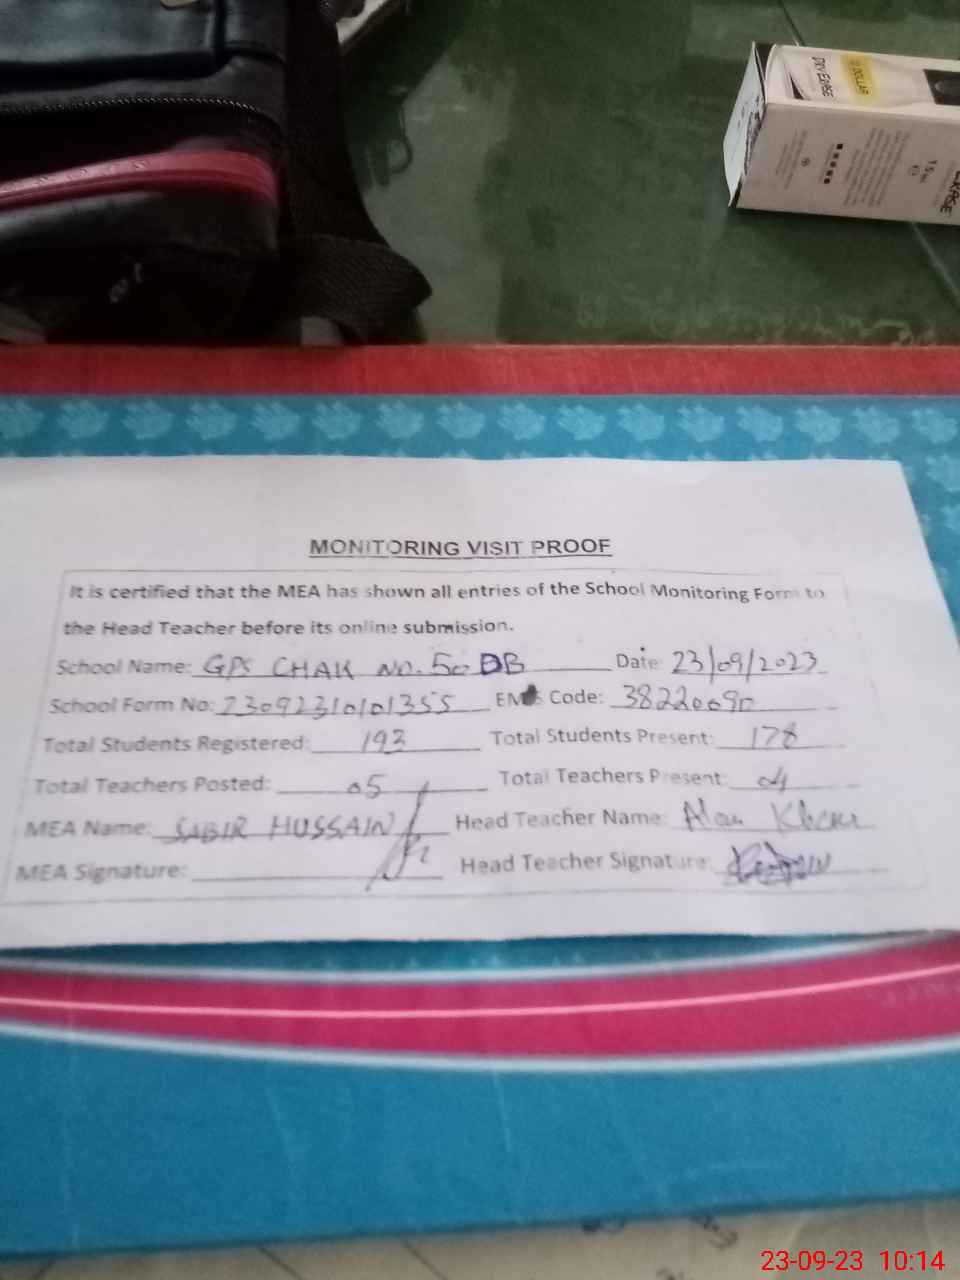 DOLLAR
DRY ERASE
MONITORING VISIT PROOF
It is certified that the MEA has shown all entries of the School Monitoring Form to
the Head Teacher before its online submission.
School Name: GPS CHAK NO. 50 DB Date: 23/09/2023
School Form No: 23092310101355 Code: 38220090
Total Students Registered: 193 Total Students Present: 178
Total Teachers Posted: 05 Total Teachers Present: 04
MEA Name: SABIR HUSSAIN Head Teacher Name: Khan
MEA Signature: Head Teacher Signature:
23-09-23 10:14